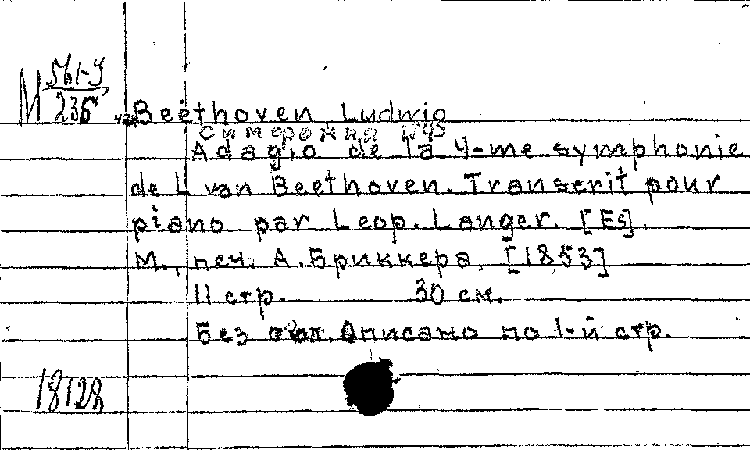 М 561-9
236
Beethoven, Ludwig
Симфония №4
Adagio de la 4-me symphonie
de L. van Beethoven. Transcrit pour
piano par Leop. Langer. [Es].
М., печ. А. Бриккера, [1853]
11 стр. 30 см.
Без обл. Описано по 1-й стр.
18128